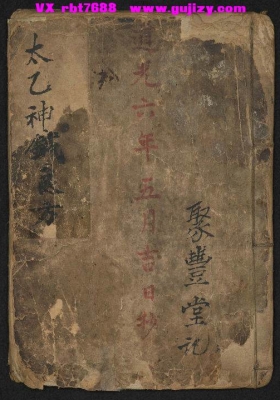 VX rbt7688  www.gujizy.com
聚豐堂記
道光六年五月吉日抄
太乙神鍼
方